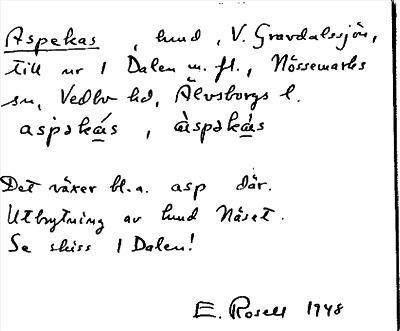 Aspekas, hund, V. Gravdalssjön,
till nr 1 Dalen m. fl., Nössemarks
sn, Vedbo hd, Älvsborgs l.
aspəkás, àspəkás
Det växer bl.a. asp där.
Utbrytning av hund Näset.
Se skiss 1 Dalen!
E. Rosell 1948